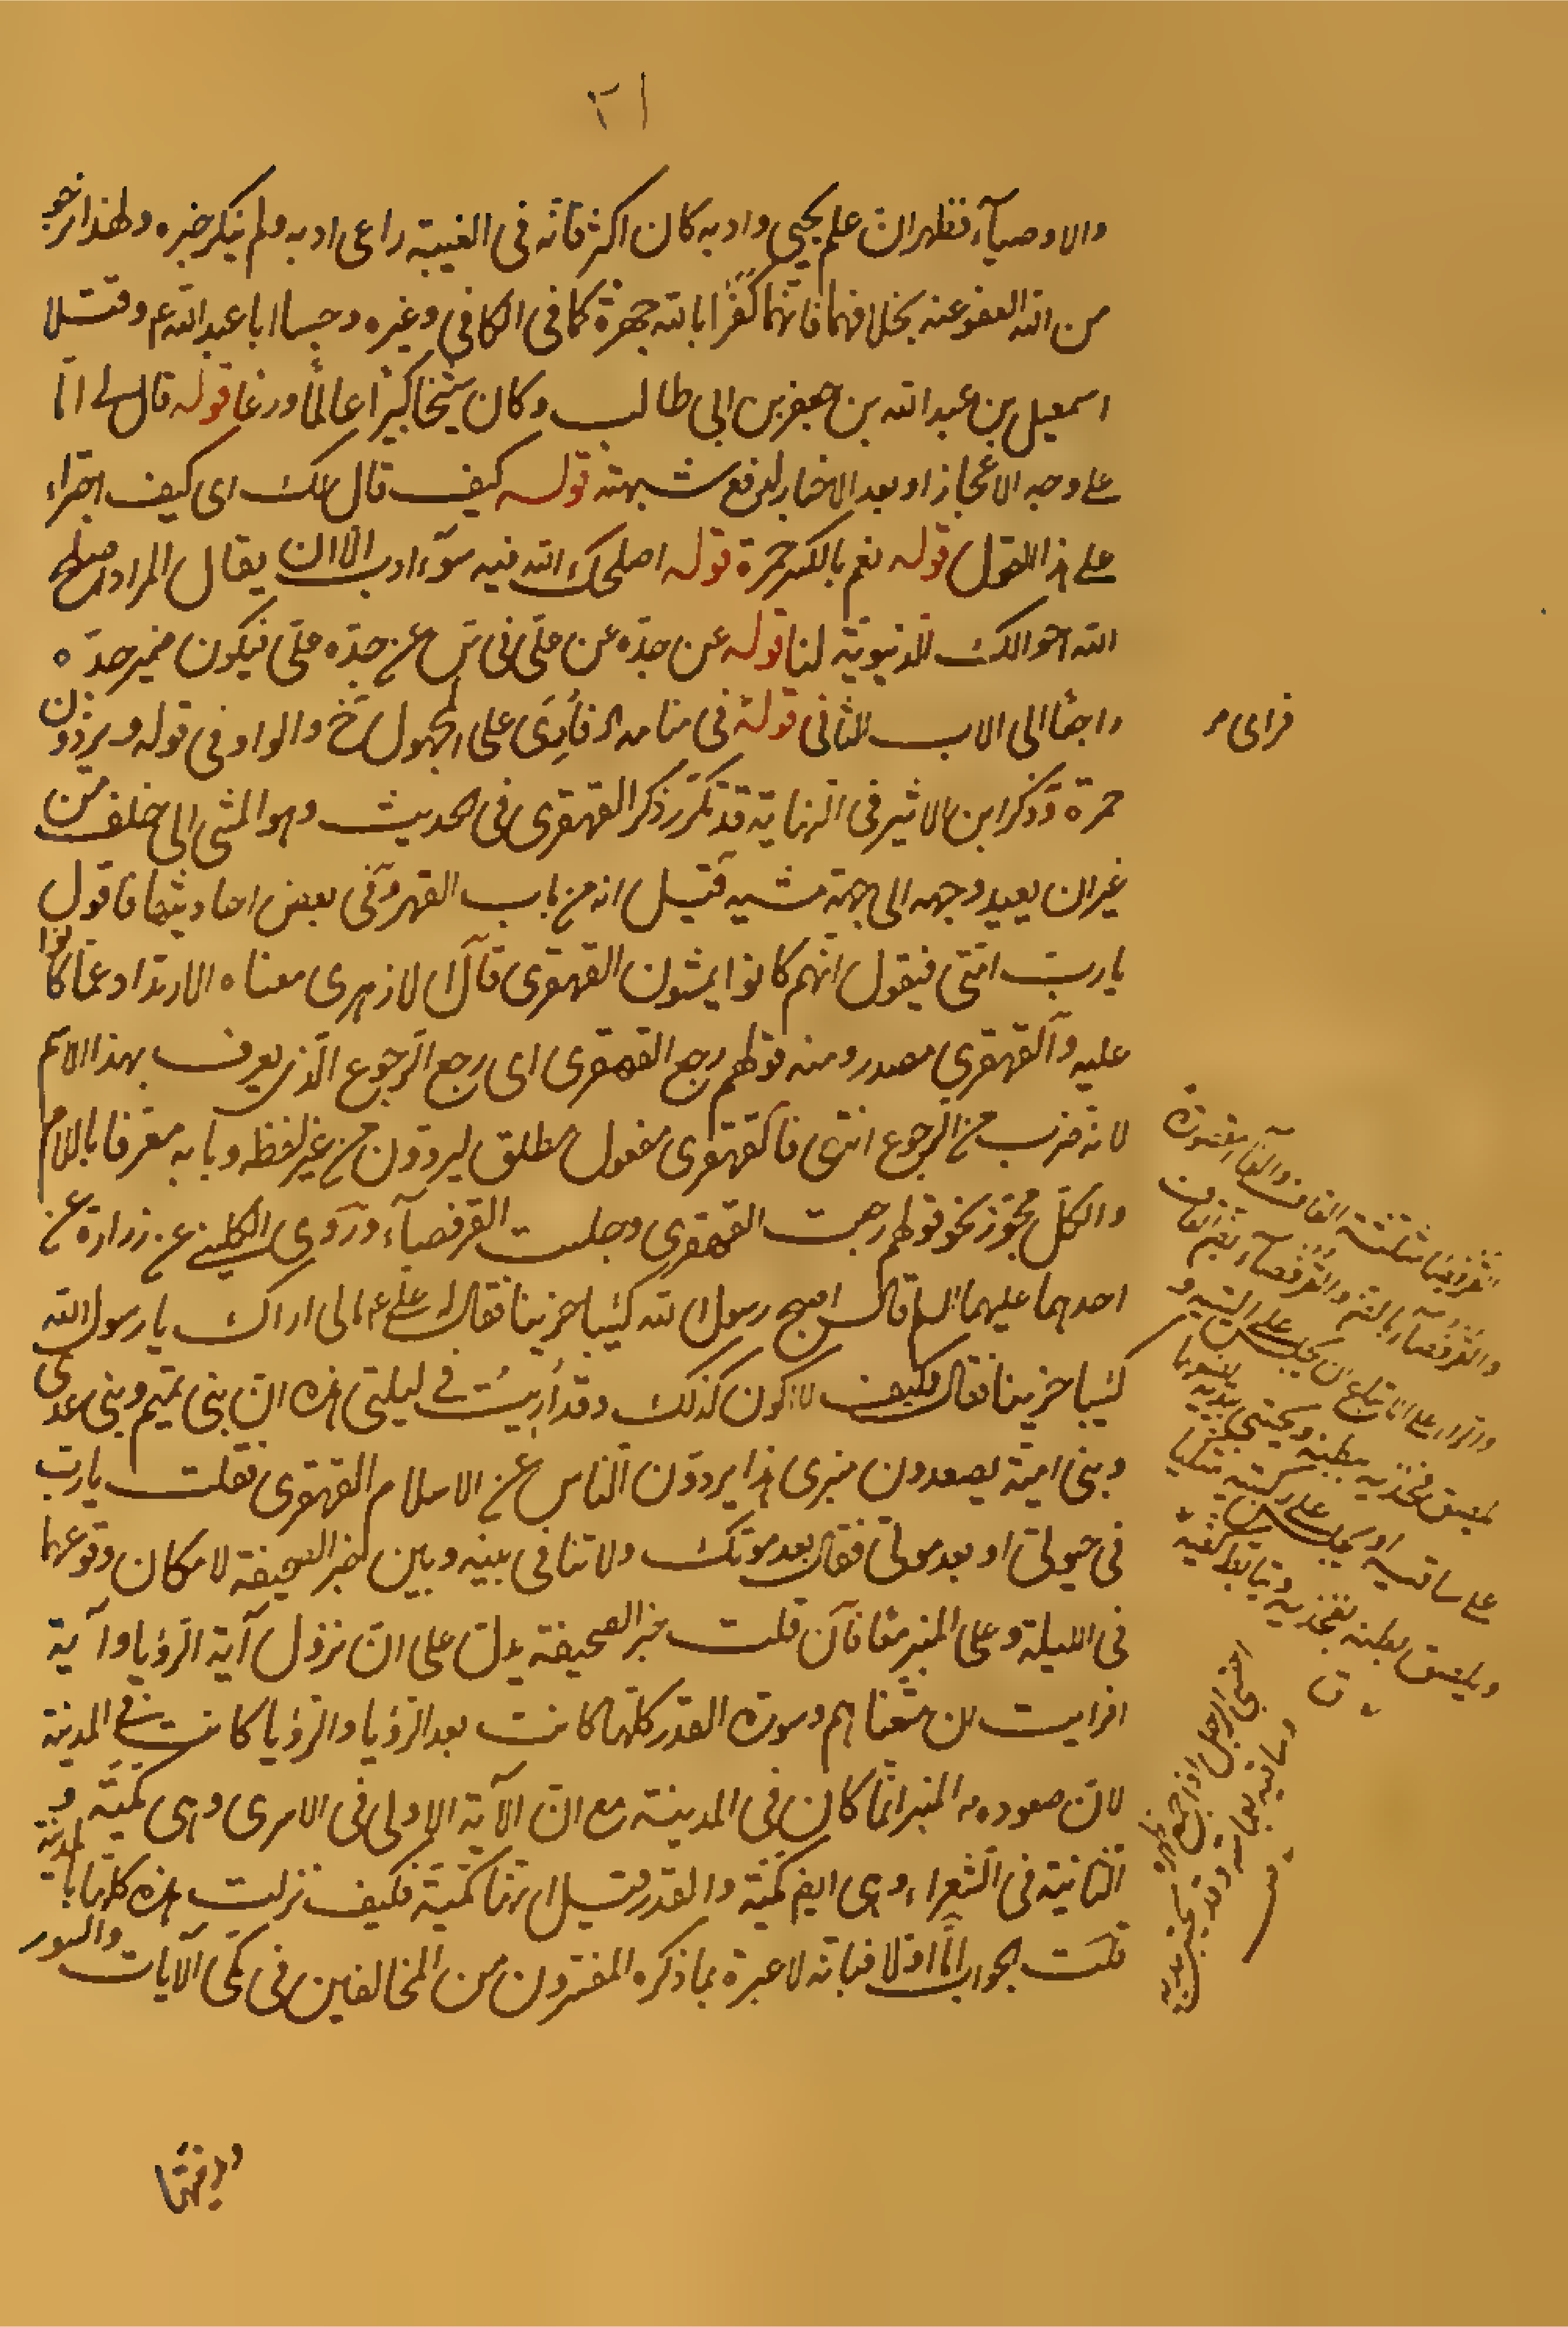 ٢١
والاوصيآء فظهر ان علم يحيى وادبه كان اكثر فانه فى الغيبة راعى ادبه ولم ينكر خبره ولهذا نرجو
من الله العفو عنه بخلافهما فانهما كفرا بالله جهرة كما فى الكافي وغيره وحبسا ابا عبد الله ع وقتلا
اسمعيل بن عبد الله بن جعفر بن ابى طالب وكان شيخا كبيرا عالما ورعا قوله قال لى انا
على وجه الاعجاز او بعد الاخبار لدفع شبهته قوله كيف قال لك اى كيف اجتراء
على هذا القول قوله نعم بالكسر حمرة قوله اصلحك الله فيه سوء ادب الا ان يقال المراد اصلح
الله احوالك الدنيوية لنا قوله عن جده عن على فى ش عن جده على فيكون ضمير جده
راجعا الى الاب الثانى قوله فى منامه فأرى على المجهول خ والواو فى قوله ويردون
حمرة وذكر ابن الاثير فى النهاية قد تكرر ذكر القهقرى فى الحديث وهو المشى الى خلف من
غير ان يعيد وجهه الى جهة مشيه قيل انه من باب القهر وفى بعض احاديثها فاقول
يا رب امتى فيقول انهم كانوا يمشون القهقرى قال الازهرى معناه الارتداد عما كانوا
عليه والقهقرى مصدر ومنه قولهم رجع القهقرى اى رجع الرجوع الذى يعرف بهذا الاسم
لانه ضرب من الرجوع انتهى فالقهقرى مفعول مطلق ليردون من غير لفظه وبابه معرفا باللام
والكل مجوز نحو قولهم رجعت القهقرى وجلست القرفصآء وروى الكلينى عن زرارة عن
احدهما عليهما السلم قال اصبح رسول الله كئيبا حزينا فقال له على ع مالى اراك يا رسول الله
كئيبا حزينا فقال وكيف لا اكون كذلك وقد أريت فى ليلتى هذه ان بنى تميم وبنى عدى
وبنى امية يصعدون منبرى هذا يردون الناس عن الاسلام القهقرى فقلت يا رب
فى حيوتى او بعد موتى فقال بعد موتك ولا تنافى بينه وبين خبر الصحيفة لامكان وقوعهما
فى الليلة وعلى المنبر معا فان قلت خبر الصحيفة يدل على ان نزول آية الرؤيا وآية
افرايت ان متعناهم وسورة القدر كلها كانت بعد الرؤيا والرؤيا كانت فى المدينة
لان صعوده المنبر انما كان فى المدينة مع ان الآية الاولى فى الاسرى وهى مكية و
الثانية فى الشعراء وهى ايضا مكية والقدر قيل انها مكية فكيف نزلت هذه كلها بالمدينة
قلت الجواب اما اولا فبانه لا عبرة بما ذكره المفسرون من المخالفين فى مكى الآيات والسور
القرفصا مثلثة القاف والفآء مقصورة
والقرفصآء بالضم والقرفصآء بضم القاف
والراء على الاتباع ان يجلس على اليتيه و
يلصق فخذيه ببطنه ويحتبى بيديه يضعهما
على ساقيه او يجلس على ركبتيه متكيا
ويلصق بطنه بفخذيه ويتابط كفيه
ق
احتبى الرجل اذا جمع ظهره
وساقيه بعمامته وقد يحتبى بيديه